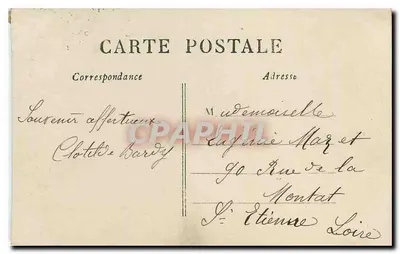 CARTE POSTALE
Correspondance
Adresse
Souvenir affectueux
Clotilde Bardy
Mademoiselle
Eugénie Mazet
90 Rue de la
Montat
St Etienne
Loire
CPARAMA